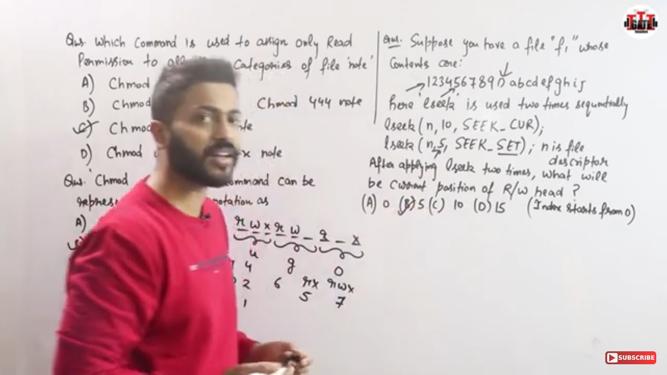 Qus. Which Command is used to assign only Read
Permission to all Categories of file 'note'
A) Chmod
B) Chmod 444 note
C) Chmod
D) Chmod x note
Qus. Chmod command can be
notation as
A)
r w x r w _ r _ x
u g o
4
2 6 rx rwx
1 5 7
Qus. Suppose you have a file "f1" whose
Contents are:
1234567890abcdefghij
here lseek is used two times sequentially
lseek (n, 10, SEEK_CUR);
lseek (n, 5, SEEK_SET); n is file
descriptor
After applying lseek two times, what will
be current position of R/W head?
(A) 0 (B) 5 (C) 10 (D) 15 (Index starts from 0)
GATE
SUBSCRIBE